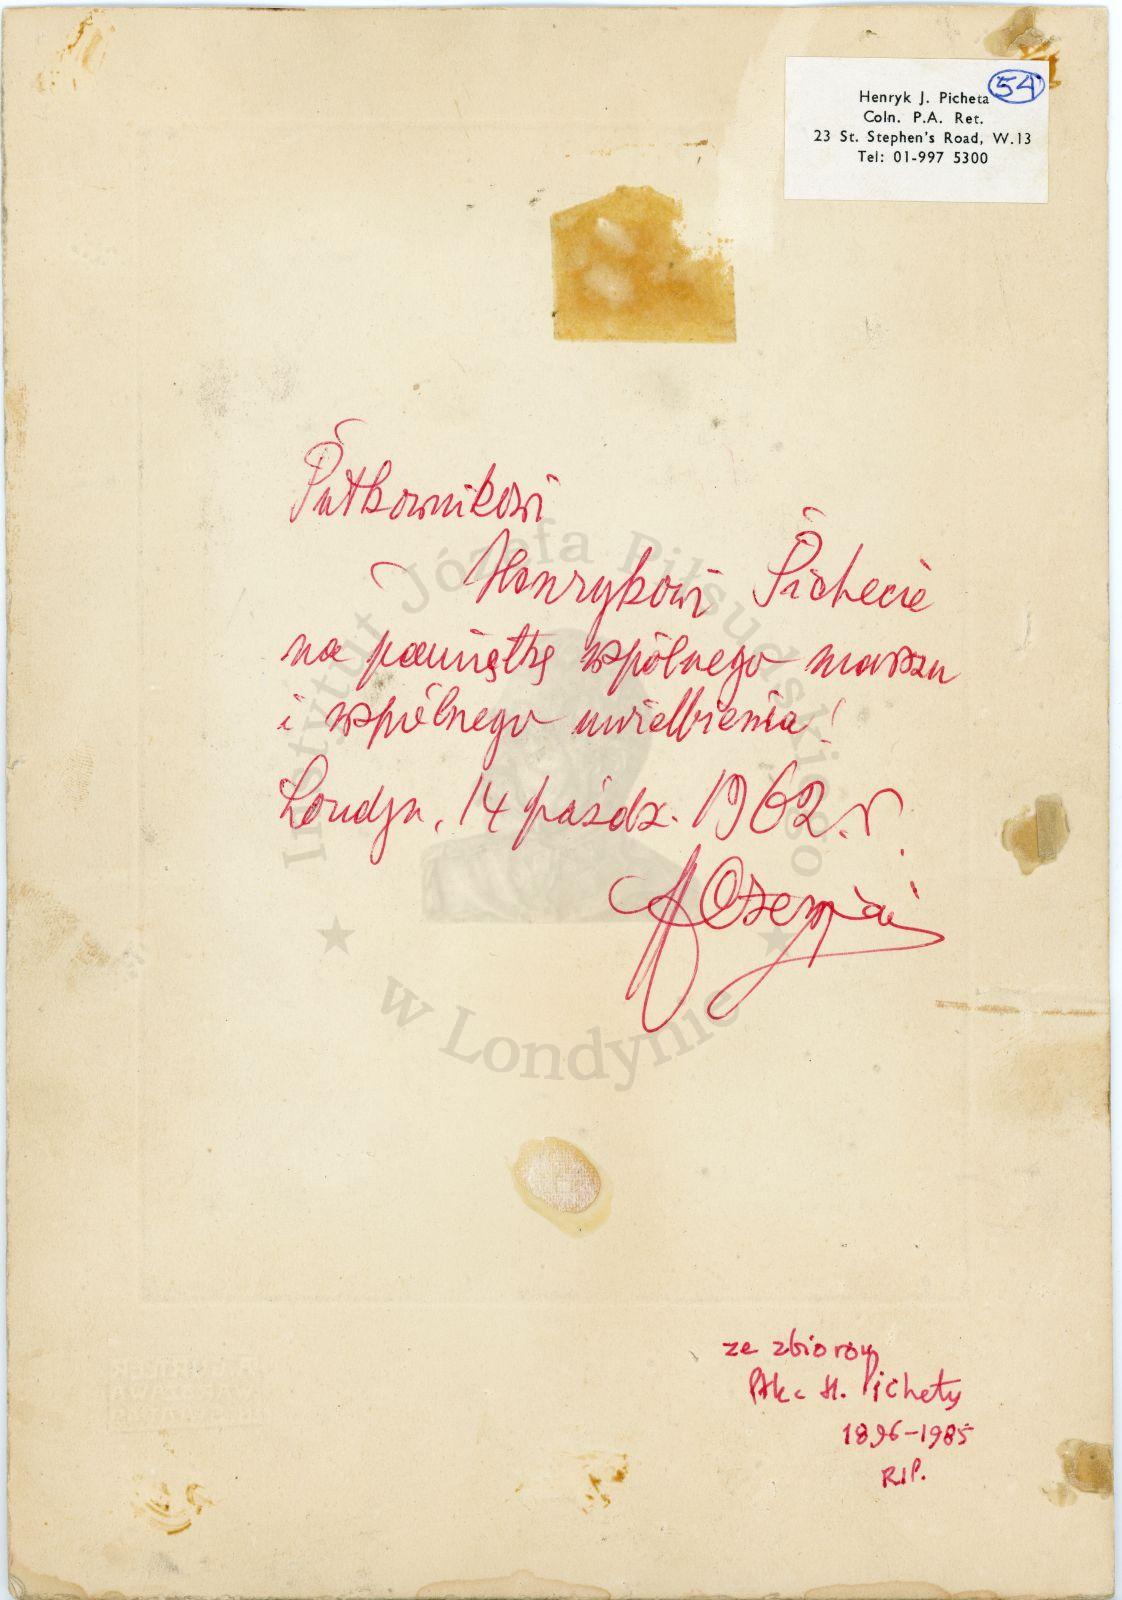 54
Henryk J. Picheta
Coln. P.A. Ret.
23 St. Stephen's Road, W.13
Tel: 01-997 5300
Pułkownikowi
Henrykowi Pichecie
na pamiątkę wspólnego marszu
i wspólnego uwielbienia!
Londyn, 14 paźdz. 1962.r.
Instytut Józefa Piłsudskiego
w Londynie
ze zbiorów
Płk. H. Pichety
1896-1985
RIP.